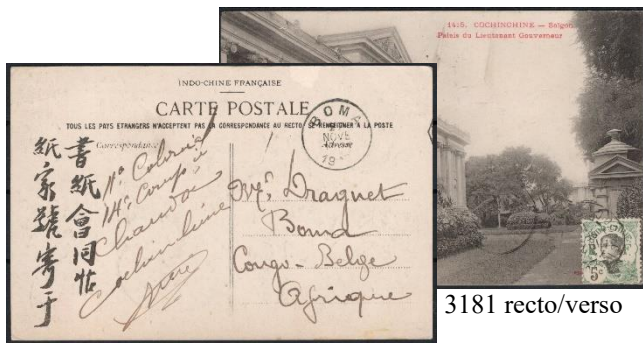 1415. COCHINCHINE — Saigon
Palais du Lieutenant Gouverneur
INDO-CHINE FRANÇAISE
CARTE POSTALE
TOUS LES PAYS ETRANGERS N'ACCEPTENT PAS LA CORRESPONDANCE AU RECTO. SE RENSEIGNER A LA POSTE
Correspondance
Adresse
BOMA
NOVE
19
書紙會同帖
紙家號寄于
Chaudoc
Cochinchine
Mr. Dragnet
Boma
Congo-Belge
Afrique
3181 recto/verso